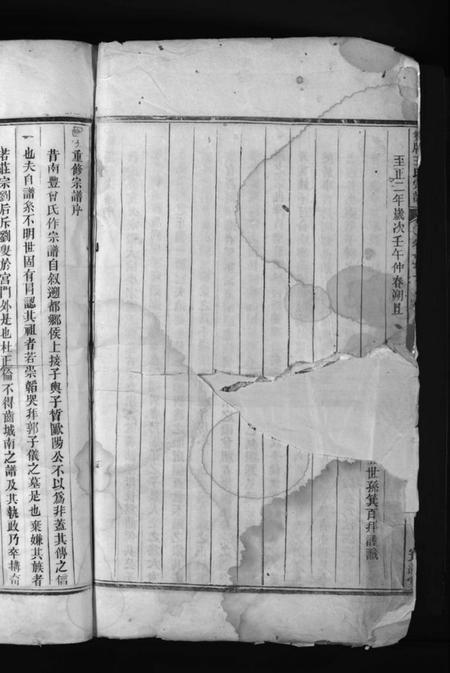 至正二年歲次壬午仲春朔旦
世孫箕百拜謹識
重修宗譜序
昔南豐曾氏作宗譜自叙遡都鄉侯上接子輿子晳歐陽公不以為非蓋其傳之信
也夫自譜系不明世固有冒認其祖者若崇韜哭拜郭子儀之墓是也棄嫌其族者
若莊宗劉后斥劉叟於宮門外是也杜正倫不得齒城南之譜及其執政乃奉搆